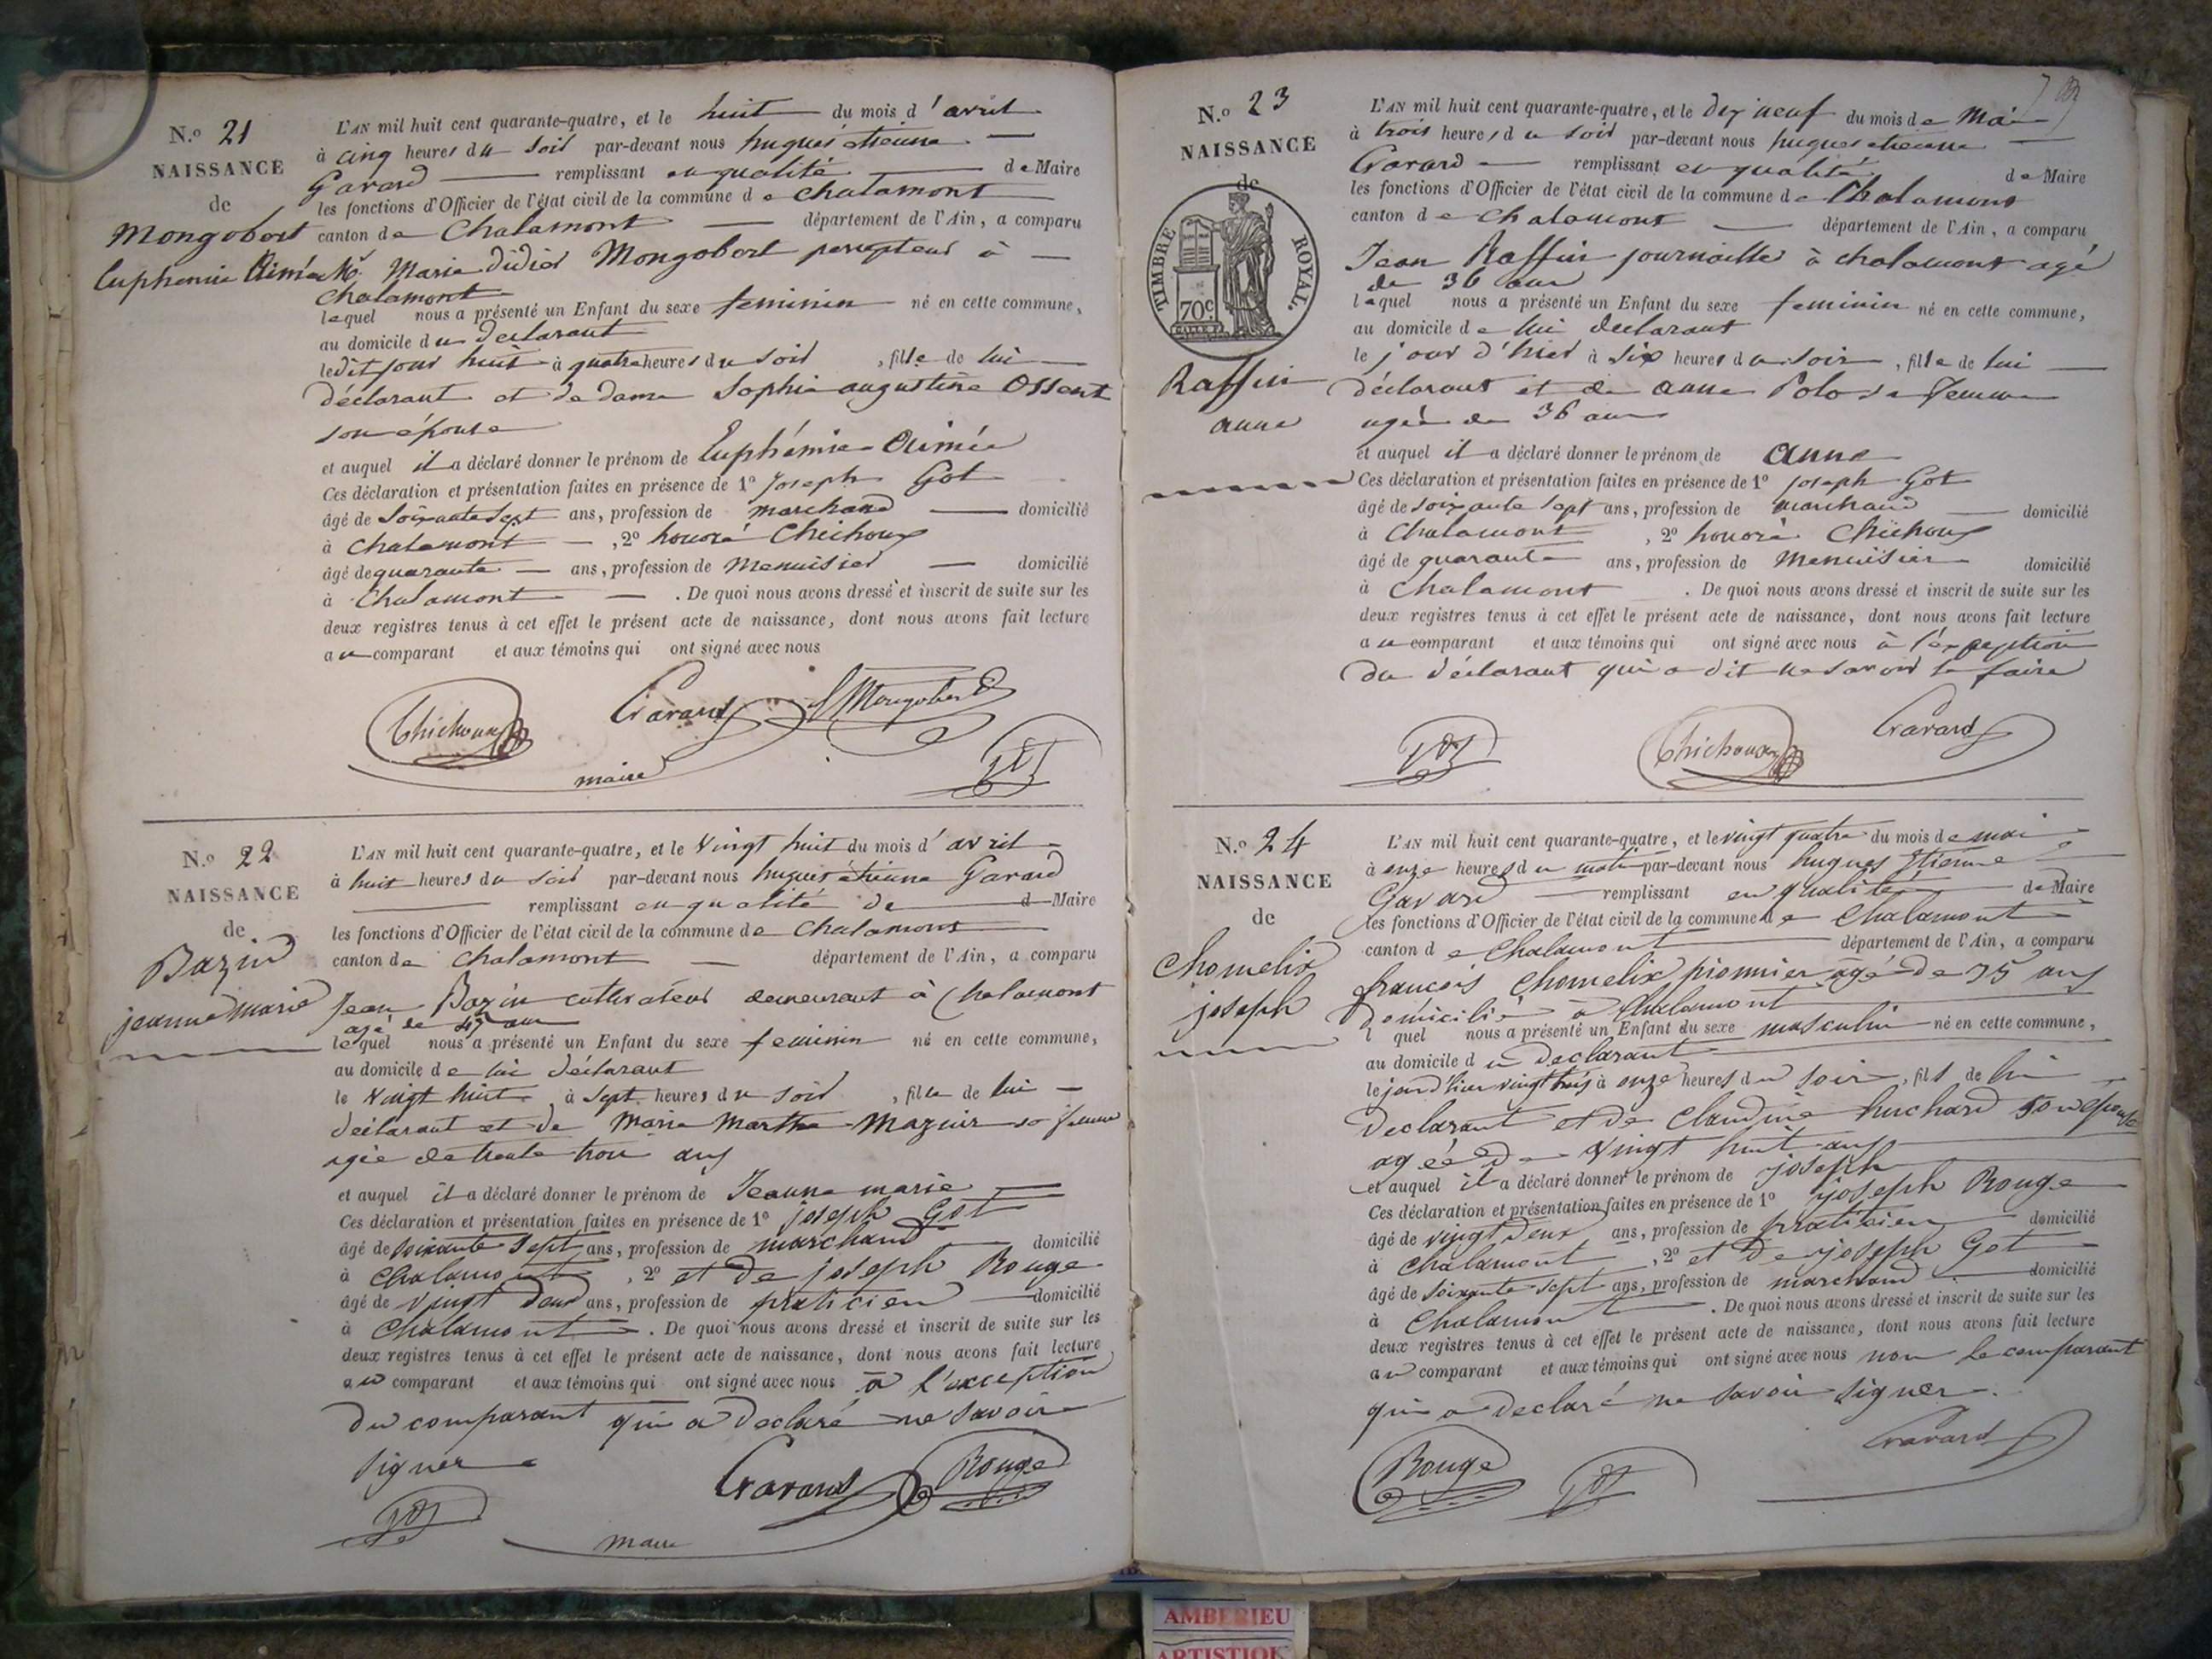 N.o 21
NAISSANCE
de
Mongobert
Euphemie Aimée
L'AN mil huit cent quarante-quatre, et le huit du mois d'avril
à cinq heures du soir par-devant nous hugues etienne
Gavard remplissant en qualité de Maire
les fonctions d'Officier de l'état civil de la commune de chalamont
canton de Chalamont département de l'Ain, a comparu
Mr. Marie didier Mongobert percepteur à
Chalamont
lequel nous a présenté un Enfant du sexe feminin né en cette commune,
au domicile du declarant
ledit jour huit à quatre heures du soir, fille de lui
déclarant et de dame Sophie augustine Ossent
son épouse
et auquel il a déclaré donner le prénom de Euphémie Aimée
Ces déclaration et présentation faites en présence de 1o Joseph Got
âgé de Soixante sept ans, profession de marchand domicilié
à Chalamont, 2o honoré Chichoux
âgé de quarante ans, profession de Menuisier domicilié
à Chalamont. De quoi nous avons dressé et inscrit de suite sur les
deux registres tenus à cet effet le présent acte de naissance, dont nous avons fait lecture
au comparant et aux témoins qui ont signé avec nous
Chichoux Gavard Mongobert
maire Got
N.o 22
NAISSANCE
de
Bazin
jeanne marie
L'AN mil huit cent quarante-quatre, et le vingt huit du mois d'avril
à huit heures du soir par-devant nous hugues étienne Gavard
remplissant en qualité de d Maire
les fonctions d'Officier de l'état civil de la commune de Chalamont
canton de Chalamont département de l'Ain, a comparu
Jean Bazin cultivateur demeurant à Chalamont
agé de 45 ans
lequel nous a présenté un Enfant du sexe feminin né en cette commune,
au domicile de lui déclarant
le vingt huit à sept heures du soir, fille de lui
déclarant et de Marie Marthe Mazuir sa femme
agée de trente trois ans
et auquel il a déclaré donner le prénom de Jeanne marie
Ces déclaration et présentation faites en présence de 1o joseph Got
âgé de soixante sept ans, profession de marchand domicilié
à Chalamont, 2o et de joseph Rouge
âgé de vingt deux ans, profession de praticien domicilié
à Chalamont. De quoi nous avons dressé et inscrit de suite sur les
deux registres tenus à cet effet le présent acte de naissance, dont nous avons fait lecture
au comparant et aux témoins qui ont signé avec nous à l'exception
du comparant qui a declaré ne savoir
signer
Got Gavard Rouge
maire
N.o 23
NAISSANCE
de
TIMBRE ROYAL.
70c.
Raffin
anne
L'AN mil huit cent quarante-quatre, et le dix neuf du mois de Mai
à trois heures du soir par-devant nous hugues etienne
Gavard remplissant en qualité de Maire
les fonctions d'Officier de l'état civil de la commune de Chalamont
canton de Chalamont département de l'Ain, a comparu
Jean Raffin journallier à chalamont agé
de 36 ans
lequel nous a présenté un Enfant du sexe feminin né en cette commune,
au domicile de lui declarant
le jour d'hier à six heures du soir, fille de lui
déclarant et de anne Polo sa femme
agée de 36 ans
et auquel il a déclaré donner le prénom de anne
Ces déclaration et présentation faites en présence de 1o joseph Got
âgé de soixante sept ans, profession de marchand domicilié
à Chalamont, 2o honoré Chichoux
âgé de quarante ans, profession de Menuisier domicilié
à Chalamont. De quoi nous avons dressé et inscrit de suite sur les
deux registres tenus à cet effet le présent acte de naissance, dont nous avons fait lecture
au comparant et aux témoins qui ont signé avec nous à l'exception
du déclarant qui a dit ne savoir le faire
Got Chichoux Gavard
N.o 24
NAISSANCE
de
Chomelix
joseph
L'AN mil huit cent quarante-quatre, et le vingt quatre du mois de mai
à onze heures du matin par-devant nous hugues Etienne
Gavard remplissant en qualité de Maire
les fonctions d'Officier de l'état civil de la commune de Chalamont
canton de Chalamont département de l'Ain, a comparu
francois Chomelix pionnier âgé de 35 ans
domicilié à Chalamont
l quel nous a présenté un Enfant du sexe masculin né en cette commune,
au domicile du declarant
le jour d'hier vingt trois à onze heures du soir, fils de lui
declarant et de Claudine huchard son épouse
agée de vingt huit ans
et auquel il a déclaré donner le prénom de joseph
Ces déclaration et présentation faites en présence de 1o joseph Rouge
âgé de vingt deux ans, profession de praticien domicilié
à Chalamont, 2o et de joseph Got
âgé de soixante sept ans, profession de marchand domicilié
à Chalamont. De quoi nous avons dressé et inscrit de suite sur les
deux registres tenus à cet effet le présent acte de naissance, dont nous avons fait lecture
au comparant et aux témoins qui ont signé avec nous non le comparant
qui a declaré ne savoir signer.
Rouge Got Gavard
AMBERIEU
ARTISTIQ